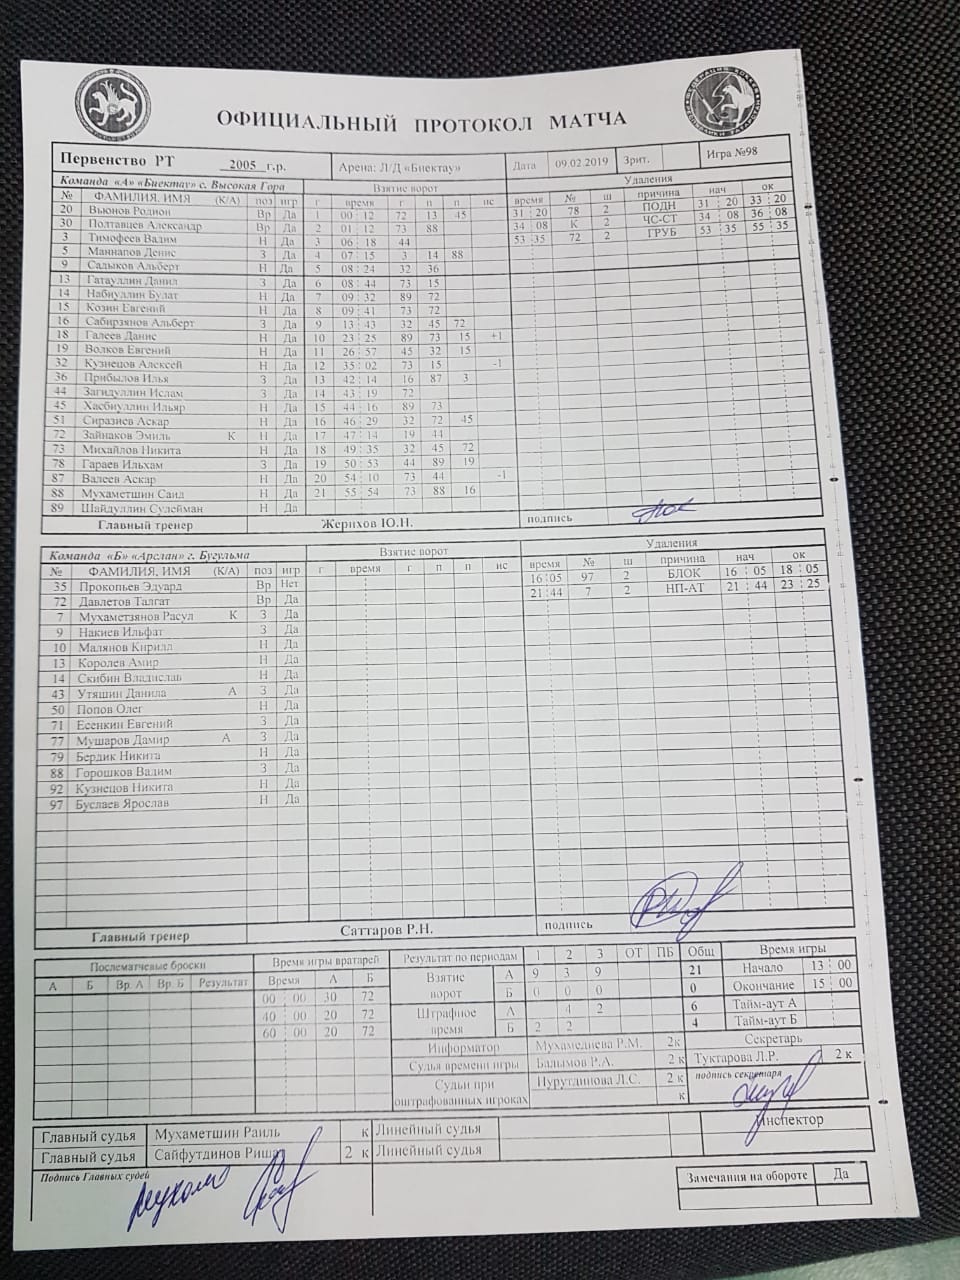 ОФИЦИАЛЬНЫЙ ПРОТОКОЛ МАТЧА
Первенство РТ 2005 г.р. Арена: Л/Д «Биектау» Дата 09.02.2019 Зрит. Игра №98
Команда «А» «Биектау» с. Высокая Гора Взятие ворот Удаления
№ ФАМИЛИЯ, ИМЯ (К/А) поз игр г время г п п ис время № ш причина нач ок
20 Вьюнов Родион Вр Да 1 00 : 12 72 13 45 31 : 20 78 2 ПОДН 31 : 20 33 : 20
30 Полтавцев Александр Вр Да 2 01 : 12 73 88 34 : 08 К 2 ЧС-СТ 34 : 08 36 : 08
3 Тимофеев Вадим Н Да 3 06 : 18 44 53 : 35 72 2 ГРУБ 53 : 35 55 : 35
5 Маннапов Денис З Да 4 07 : 15 3 14 88
9 Садыков Альберт Н Да 5 08 : 24 32 36
13 Гатауллин Данил З Да 6 08 : 44 73 15
14 Набиуллин Булат Н Да 7 09 : 32 89 72
15 Козин Евгений Н Да 8 09 : 41 73 72
16 Сабирзянов Альберт З Да 9 13 : 43 32 45 72
18 Галеев Данис Н Да 10 23 : 25 89 73 15 +1
19 Волков Евгений Н Да 11 26 : 57 45 32 15
32 Кузнецов Алексей Н Да 12 35 : 02 73 15 -1
36 Прибылов Илья З Да 13 42 : 14 16 87 3
44 Загидуллин Ислам З Да 14 43 : 19 72
45 Хасбиуллин Ильяр Н Да 15 44 : 16 89 73
51 Сиразиев Аскар Н Да 16 46 : 29 32 72 45
72 Зайнаков Эмиль К Н Да 17 47 : 14 19 44
73 Михайлов Никита Н Да 18 49 : 35 32 45 72
78 Гараев Ильхам З Да 19 50 : 53 44 89 19
87 Валеев Аскар Н Да 20 54 : 10 73 44 -1
88 Мухаметшин Саид Н Да 21 55 : 54 73 88 16
89 Шайдуллин Сулейман Н Да
Главный тренер Жерихов Ю.Н. подпись
Команда «Б» «Арслан» г. Бугульма Взятие ворот Удаления
№ ФАМИЛИЯ, ИМЯ (К/А) поз игр г время г п п ис время № ш причина нач ок
35 Прокопьев Эдуард Вр Нет 16 : 05 97 2 БЛОК 16 : 05 18 : 05
72 Давлетов Талгат Вр Да 21 : 44 7 2 НП-АТ 21 : 44 23 : 25
7 Мухаметзянов Расул К З Да
9 Накиев Ильфат З Да
10 Малянов Кирилл Н Да
13 Королев Амир Н Да
14 Скибин Владислав Н Да
43 Утяшин Данила А З Да
50 Попов Олег Н Да
71 Есенкин Евгений З Да
77 Мушаров Дамир А З Да
79 Бердик Никита Н Да
88 Горошков Вадим З Да
92 Кузнецов Никита Н Да
97 Буслаев Ярослав Н Да
Главный тренер Саттаров Р.Н. подпись
Послематчевые броски Время игры вратарей Результат по периодам 1 2 3 ОТ ПБ Общ Время игры
А Б Вр. А Вр. Б Результат Время А Б Взятие ворот А 9 3 9 21 Начало 13 : 00
00 : 00 30 72 Б 0 0 0 0 Окончание 15 : 00
40 : 00 20 72 Штрафное время А 4 2 6 Тайм-аут А
60 : 00 20 72 Б 2 2 4 Тайм-аут Б
Информатор Мухамедиева Р.М. 2к Секретарь
Судья времени игры Балымов Р.А. 2 к Туктарова Л.Р. 2 к
Судьи при оштрафованных игроках Нурутдинова Л.С. 2 к подпись секретаря
к
Главный судья Мухаметшин Раиль к Линейный судья Инспектор
Главный судья Сайфутдинов 2 к Линейный судья
Подпись Главных судей Замечания на обороте Да